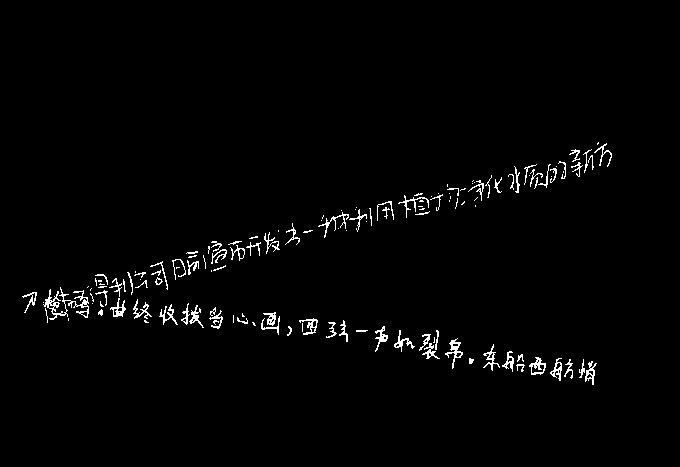 得利公司日前宣布开发出一种利用植物净化水质的新方
曲终收拨当心画，四弦一声如裂帛。东船西舫悄